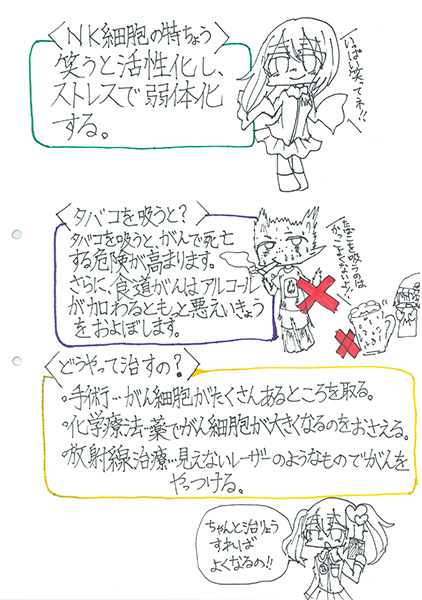 NK細胞の特ちょう
笑うと活性化し、
ストレスで弱体化
する。
いっぱい笑ってネ!!
タバコを吸うと?
タバコを吸うと、がんで死亡
する危険が高まります。
さらに、食道がんはアルコール
が加わるともっと悪えいきょう
をおよぼします。
たばこを吸うのは
かっこよくないよ!!
どうやって治すの?
・手術…がん細胞がたくさんあるところを取る。
・化学療法…薬でがん細胞が大きくなるのをおさえる。
・放射線治療…見えないレーザーのようなものでがんを
やっつける。
ちゃんと治りょう
すれば
よくなるの!!